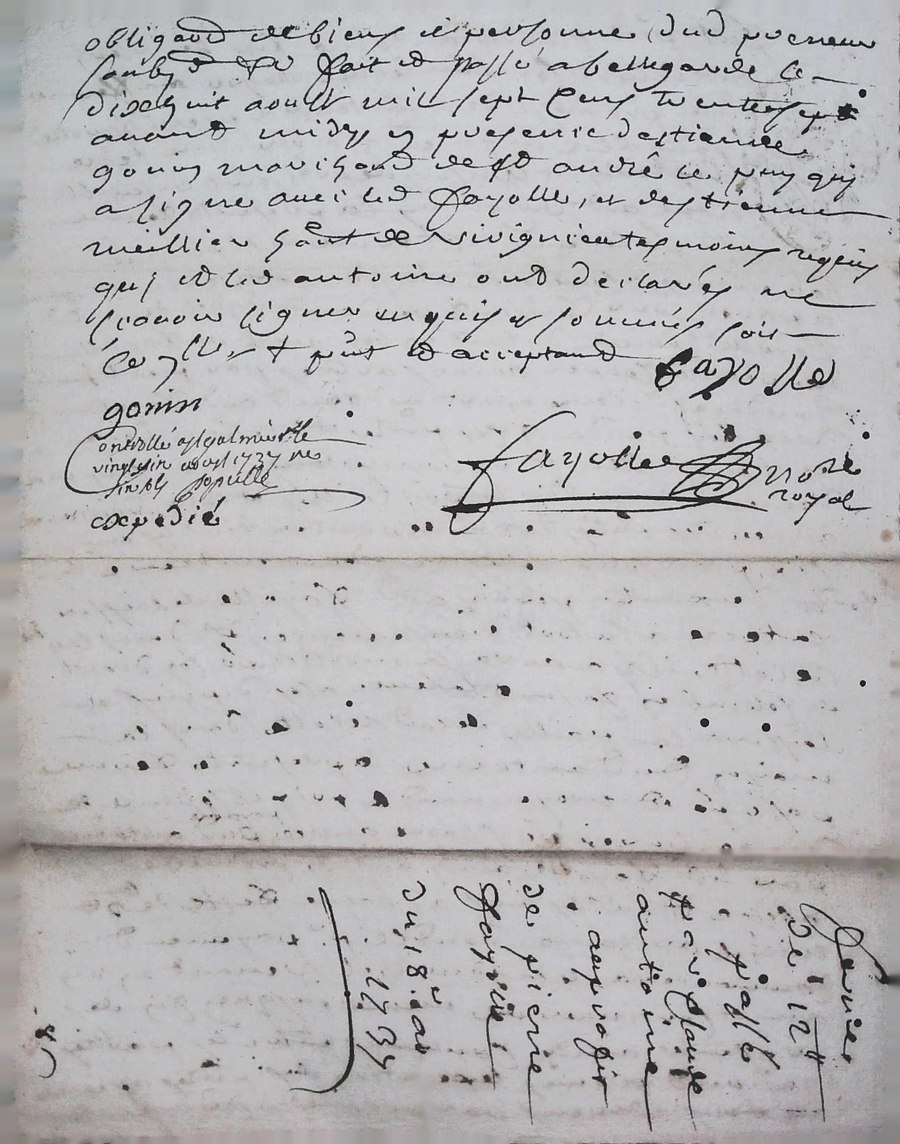 obligeant ses biens et personne dud preneur
soubz et fait et passé a bellegarde le
dixhuit aoust mil sept cens trente sept
avant midy en presence destienne
gonin marchand de st andré le puy qui
a signe avec led fayolle, et destienne
meillier de rivignieu temoins requis
qui et led antoine ont declarés ne
scavoir signer enquis et sommés soit
pnt et acceptant fayolle
gonin
Controllé a st galmier le
vingt aoust 1737
expedié
fayolle nore
royal
de 12 #
passée
par Claude
antoine
au profit
de pierre
fayolle
du 18e aou
1737